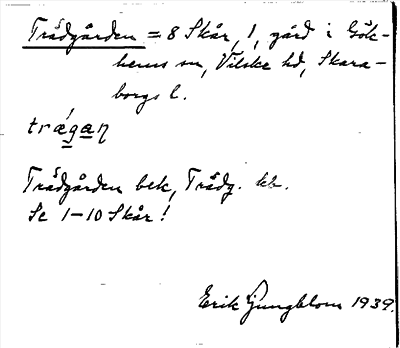 Trädgården = 8 Skår, 1, gård i Gök-
hems sn, Vilske hd, Skara-
borgs l.
trǽgaη
Trädgården bek, Trädg. kb.
Se 1–10 Skår!
Erik Ljungblom 1939.